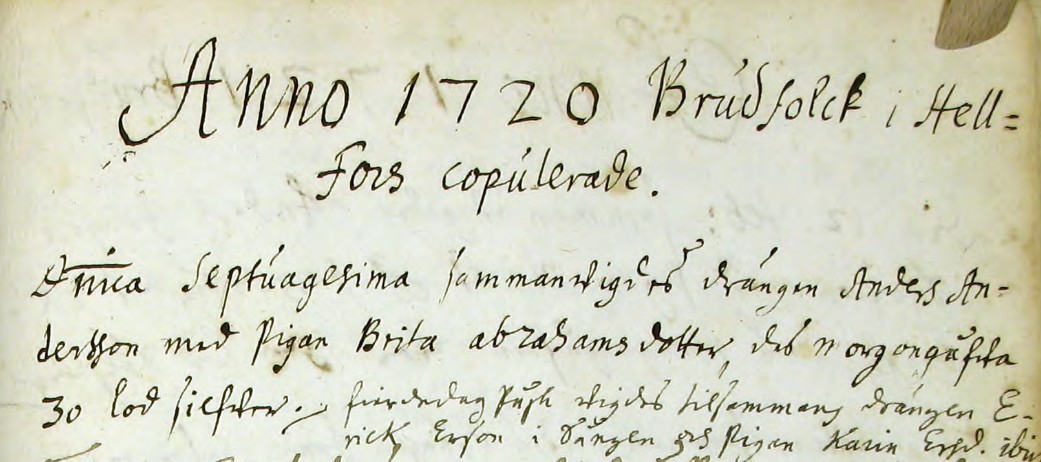 Anno 1720 Brudfolck i Hell=
Fors copulerade.
Dnica Septuagesima sammanvigdes drängen Anders An-
dersson med Pigan Brita abrahams dotter, des morgongåfva
30 lod silfver. fierdedag Pingst vigdes tilsammans drängen E-
rick Erson i Sången och Pigan Karin Ersd. ibid